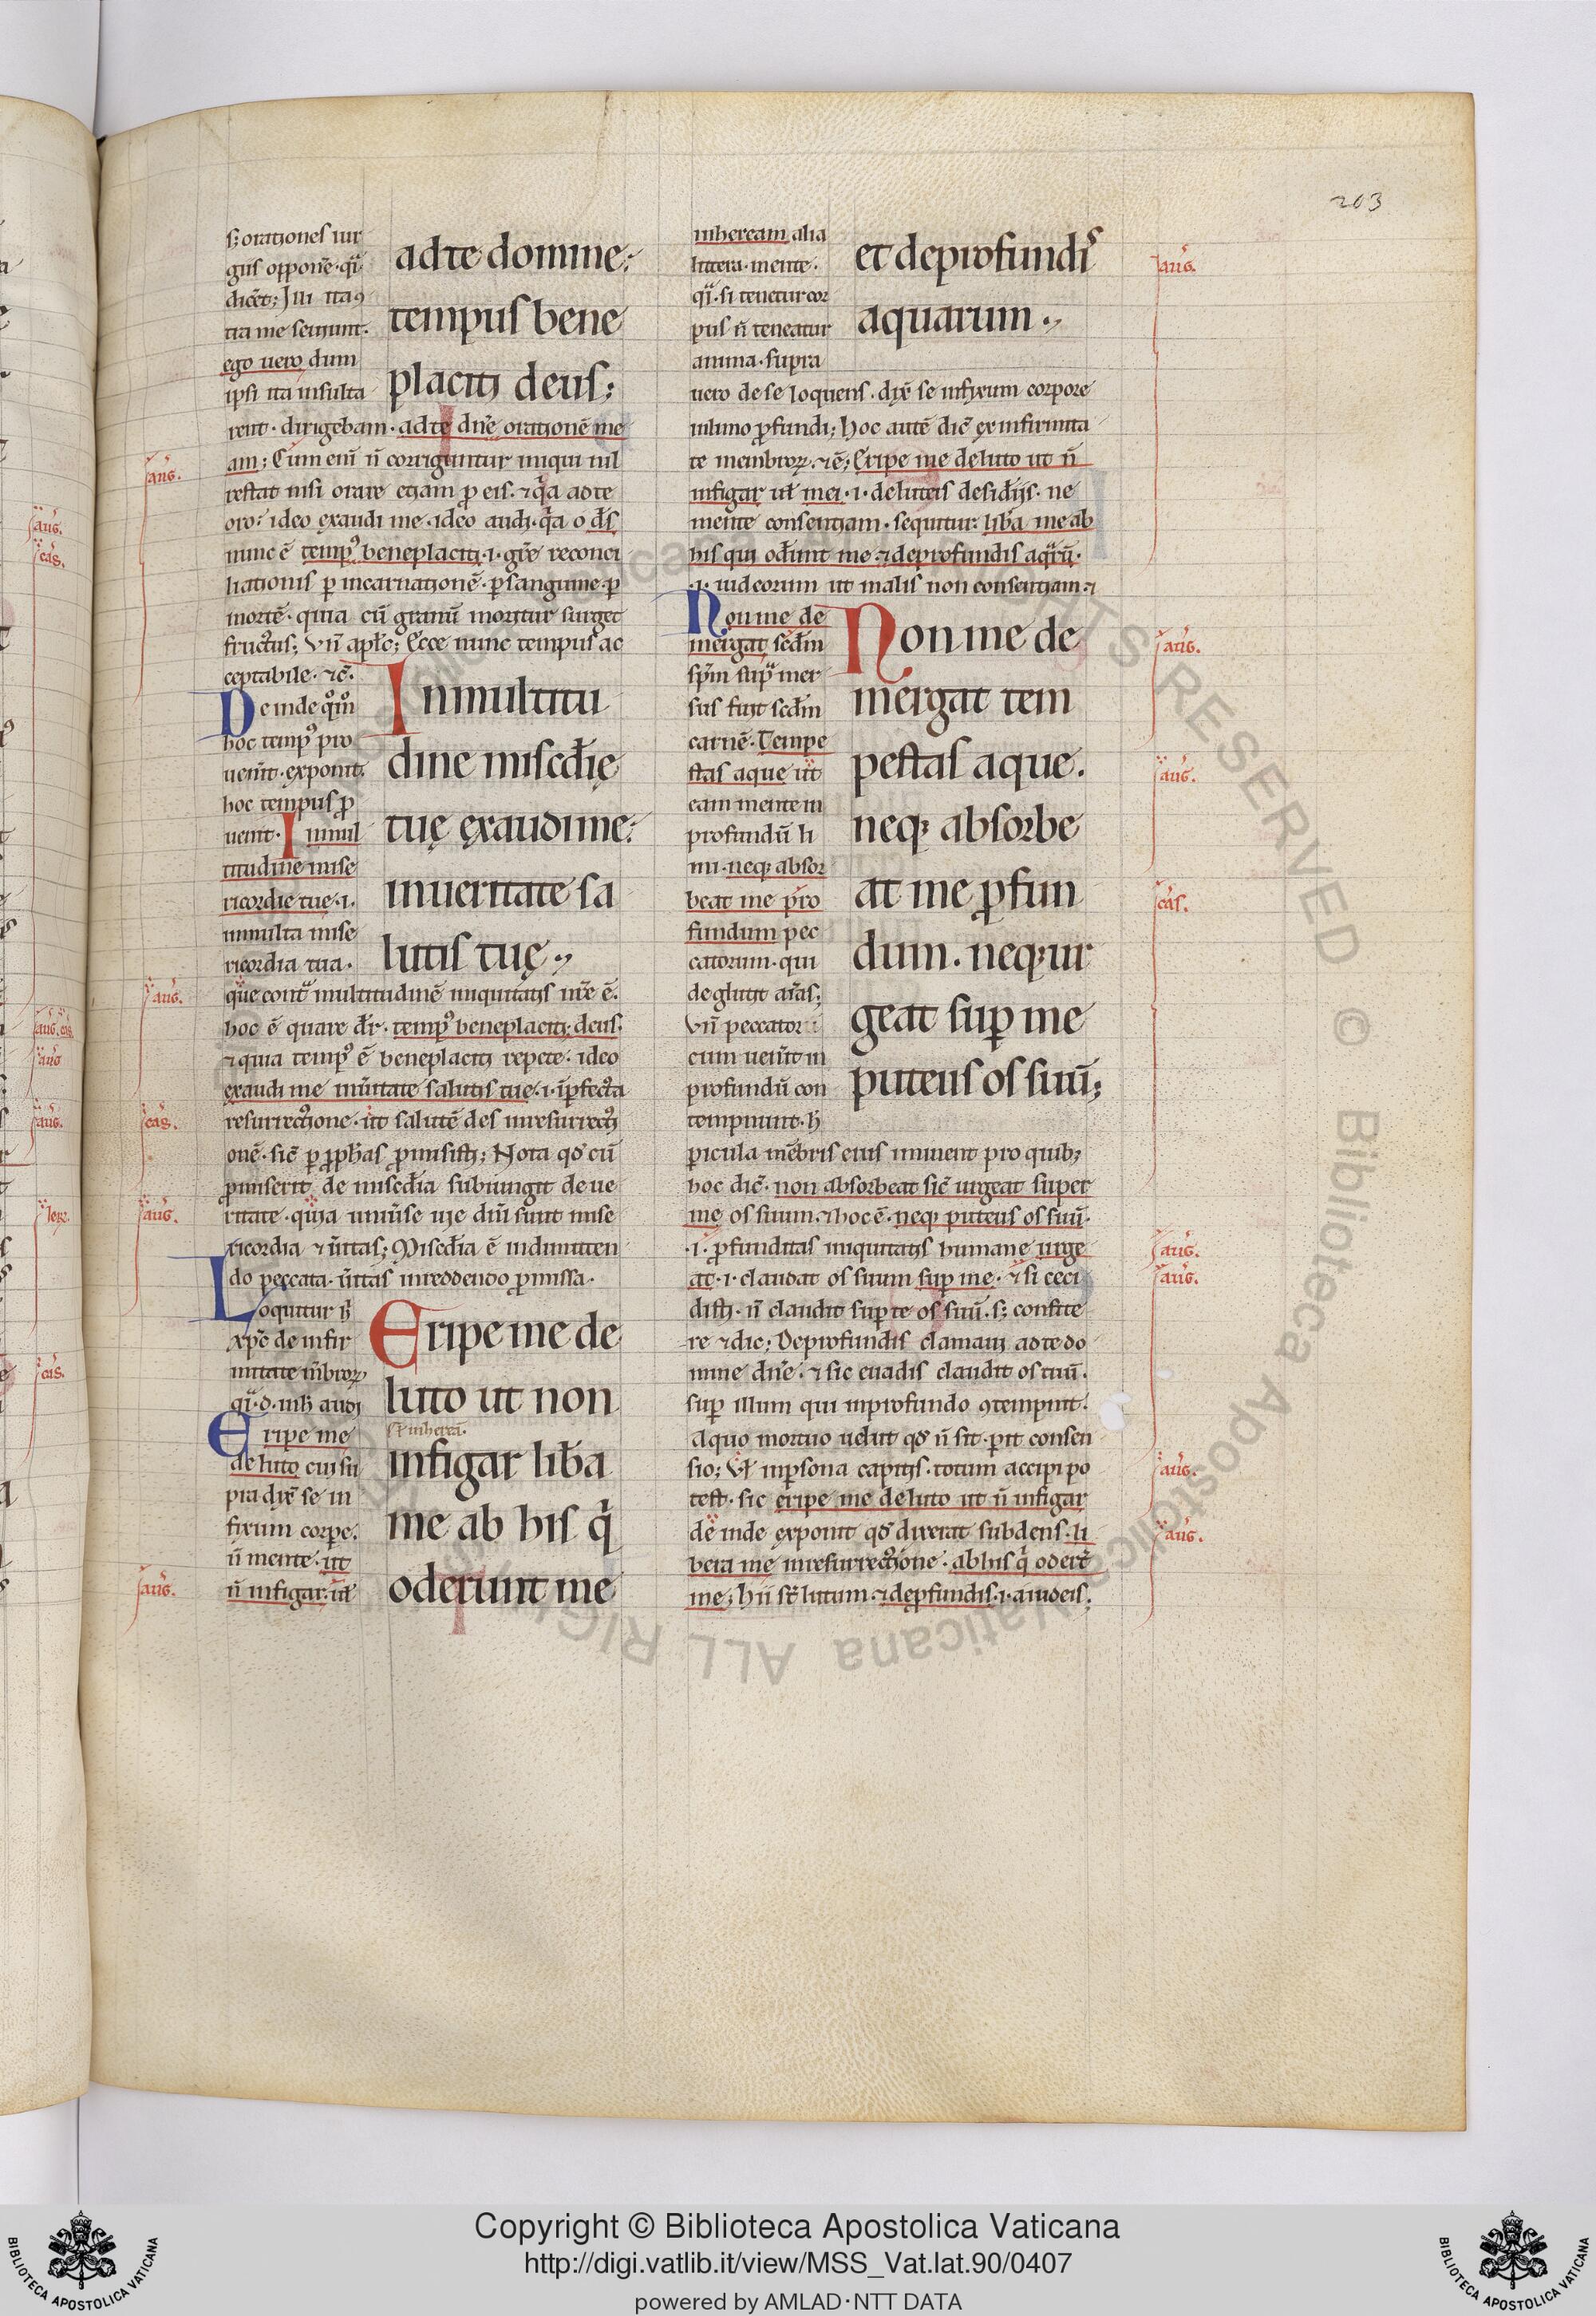 203
s; orationes iur
giis oppone. q̈i
dicet; Illi ita 9
tra me seuiunt.
ego uero dum
ipsi ita insulta
ad te domine;
tempus bene
placiti deus;
rent. dirigebam. ad te dn̄e orationē me
am; Cum eni n̄ corriguntur iniqui nil
restat nisi orare etiam ꝓ eis. ⁊ q̇a ad te
oro; ideo exaudi me. ideo audi. q̇a o d̄s
nunc ē temp9 beneplaciti .i. grē reconci
liationis ꝑ incarnationē. ꝑ sanguinē. ꝑ
mortē. quia cū granū moritur surget
fructus; Vn̄ apłs; Ecce nunc tempus ac
ceptabile. ⁊c̄.
De inde q̊m̊
hoc temp9 pro
uenit. exponit.
hoc tempus ꝓ
uenit. In mul
titudine mise
ricordie tue .i.
in multa mise
ricordia tua.
In multitu
dine miscd̄ię
tuę exaudi me;
in ueritate sa
lutis tuę.,
que cont̄ multitudinē iniquitatis nr̄e ē.
hoc ē quare dr̄. temp9 beneplaciti; deus.
⁊ quia temp9 ē beneplaciti repete. ideo
exaudi me in ūitate salutis tue .i. in ꝑfecta
resurrectione. ut salutē des in resurrecti
onē. sic̄ ꝑ ꝓph̄as ꝓmisisti; Nota qd̄ cū
ꝓmiserit de miscd̄ia subiungit de ue
ritate. quia uniūse uie dni sunt mise
ricordia ⁊ ūitas; Miscd̄ia ē in dimitten
do peccata. ūitas in reddendo ꝓmissa.
Loquitur h̄
xp̄c de infir
mitate m̄bror
q̈i .d. mh̄ audi
Eripe me
de luto cui su
pra dix̄ se in
fixum corpe.
n̄ mente. ut
n̄ infigar. ut
Eripe me de
luto ut non
ł inheream
infigar lib̄a
me ab his q̇
oderunt me
inheream alia
littera. mente.
q̈i. si tenetur cor
pus n̄ teneatur
anima. supra
et de profundis
aquarum.,
uero de se loquens. dix̄ se infixum corpore
in limo ꝓfundi; hoc autē dic̄ ex infirmita
te membror. ⁊c̄; Eripe me de luto ut n̄
infigar uł mei .i. de luteis desid̄iis. ne
mente consentiam. sequitur: lib̄a me ab
his qui od̄unt me ⁊ de profundis aq̈rū.
.i. iudeorum ut malis non consentiam. ⁊
Non me de
mergat scd̄m
sp̄m sup̄ mer
sus fuit scd̄m
carnē. Tempe
stas aque ut
eam mente in
profundū li
mi. neq; absor
beat me pro
fundum pec
catorum. qui
deglutit aīas;
Vn̄ peccator
cum uenit in
profundū con
tempnunt. h̄
Non me de
mergat tem
pestas aque.
neq; absorbe
at me ꝓfun
dum. neq; ur
geat sup̄ me
puteus os suū;
pericula mēbris eius iminent pro quib;
hoc dic̄. non absorbeat sic̄ urgeat super
me os suum. ⁊ hoc ē. neq; puteus os suū.
.i. ꝓfunditas iniquitatis humane urge
at .i. claudat os suum sup̄ me. ⁊ si ceci
disti. n̄ claudit sup̄ te os suū. s; confite
re ⁊ dic; De profundis clamaui ad te do
mine dn̄e. ⁊ sic euadis claudit os suū.
sup̄ illum qui in profundo ꝯtempnit.
A quo mortuo uelut qd̄ n̄ sit. ꝑit confes
sio; Vł in ꝑsona capitis. totum accipi po
test. sic eripe me de luto ut n̄ infigar
de inde exponit qd̄ dixerat subdens. li
bera me in resurrectione. ab his q̇ oder̄t
me; hii st̄ lutum. ⁊ de ꝓfundis .i. a iudeis;
aug.
aug.
cas.
aug.
aug.
aug.
aug.
cas.
aug.
aug.
aug.
aug.
aug.
cas.
aug. cas.
aug.
aug.
Ier.
cas.
© Biblioteca Apostolica Vaticana ALL RIGHTS RESERVED
Copyright © Biblioteca Apostolica Vaticana
http://digi.vatlib.it/view/MSS_Vat.lat.90/0407
powered by AMLAD·NTT DATA
BIBLIOTECA APOSTOLICA VATICANA
BIBLIOTECA APOSTOLICA VATICANA